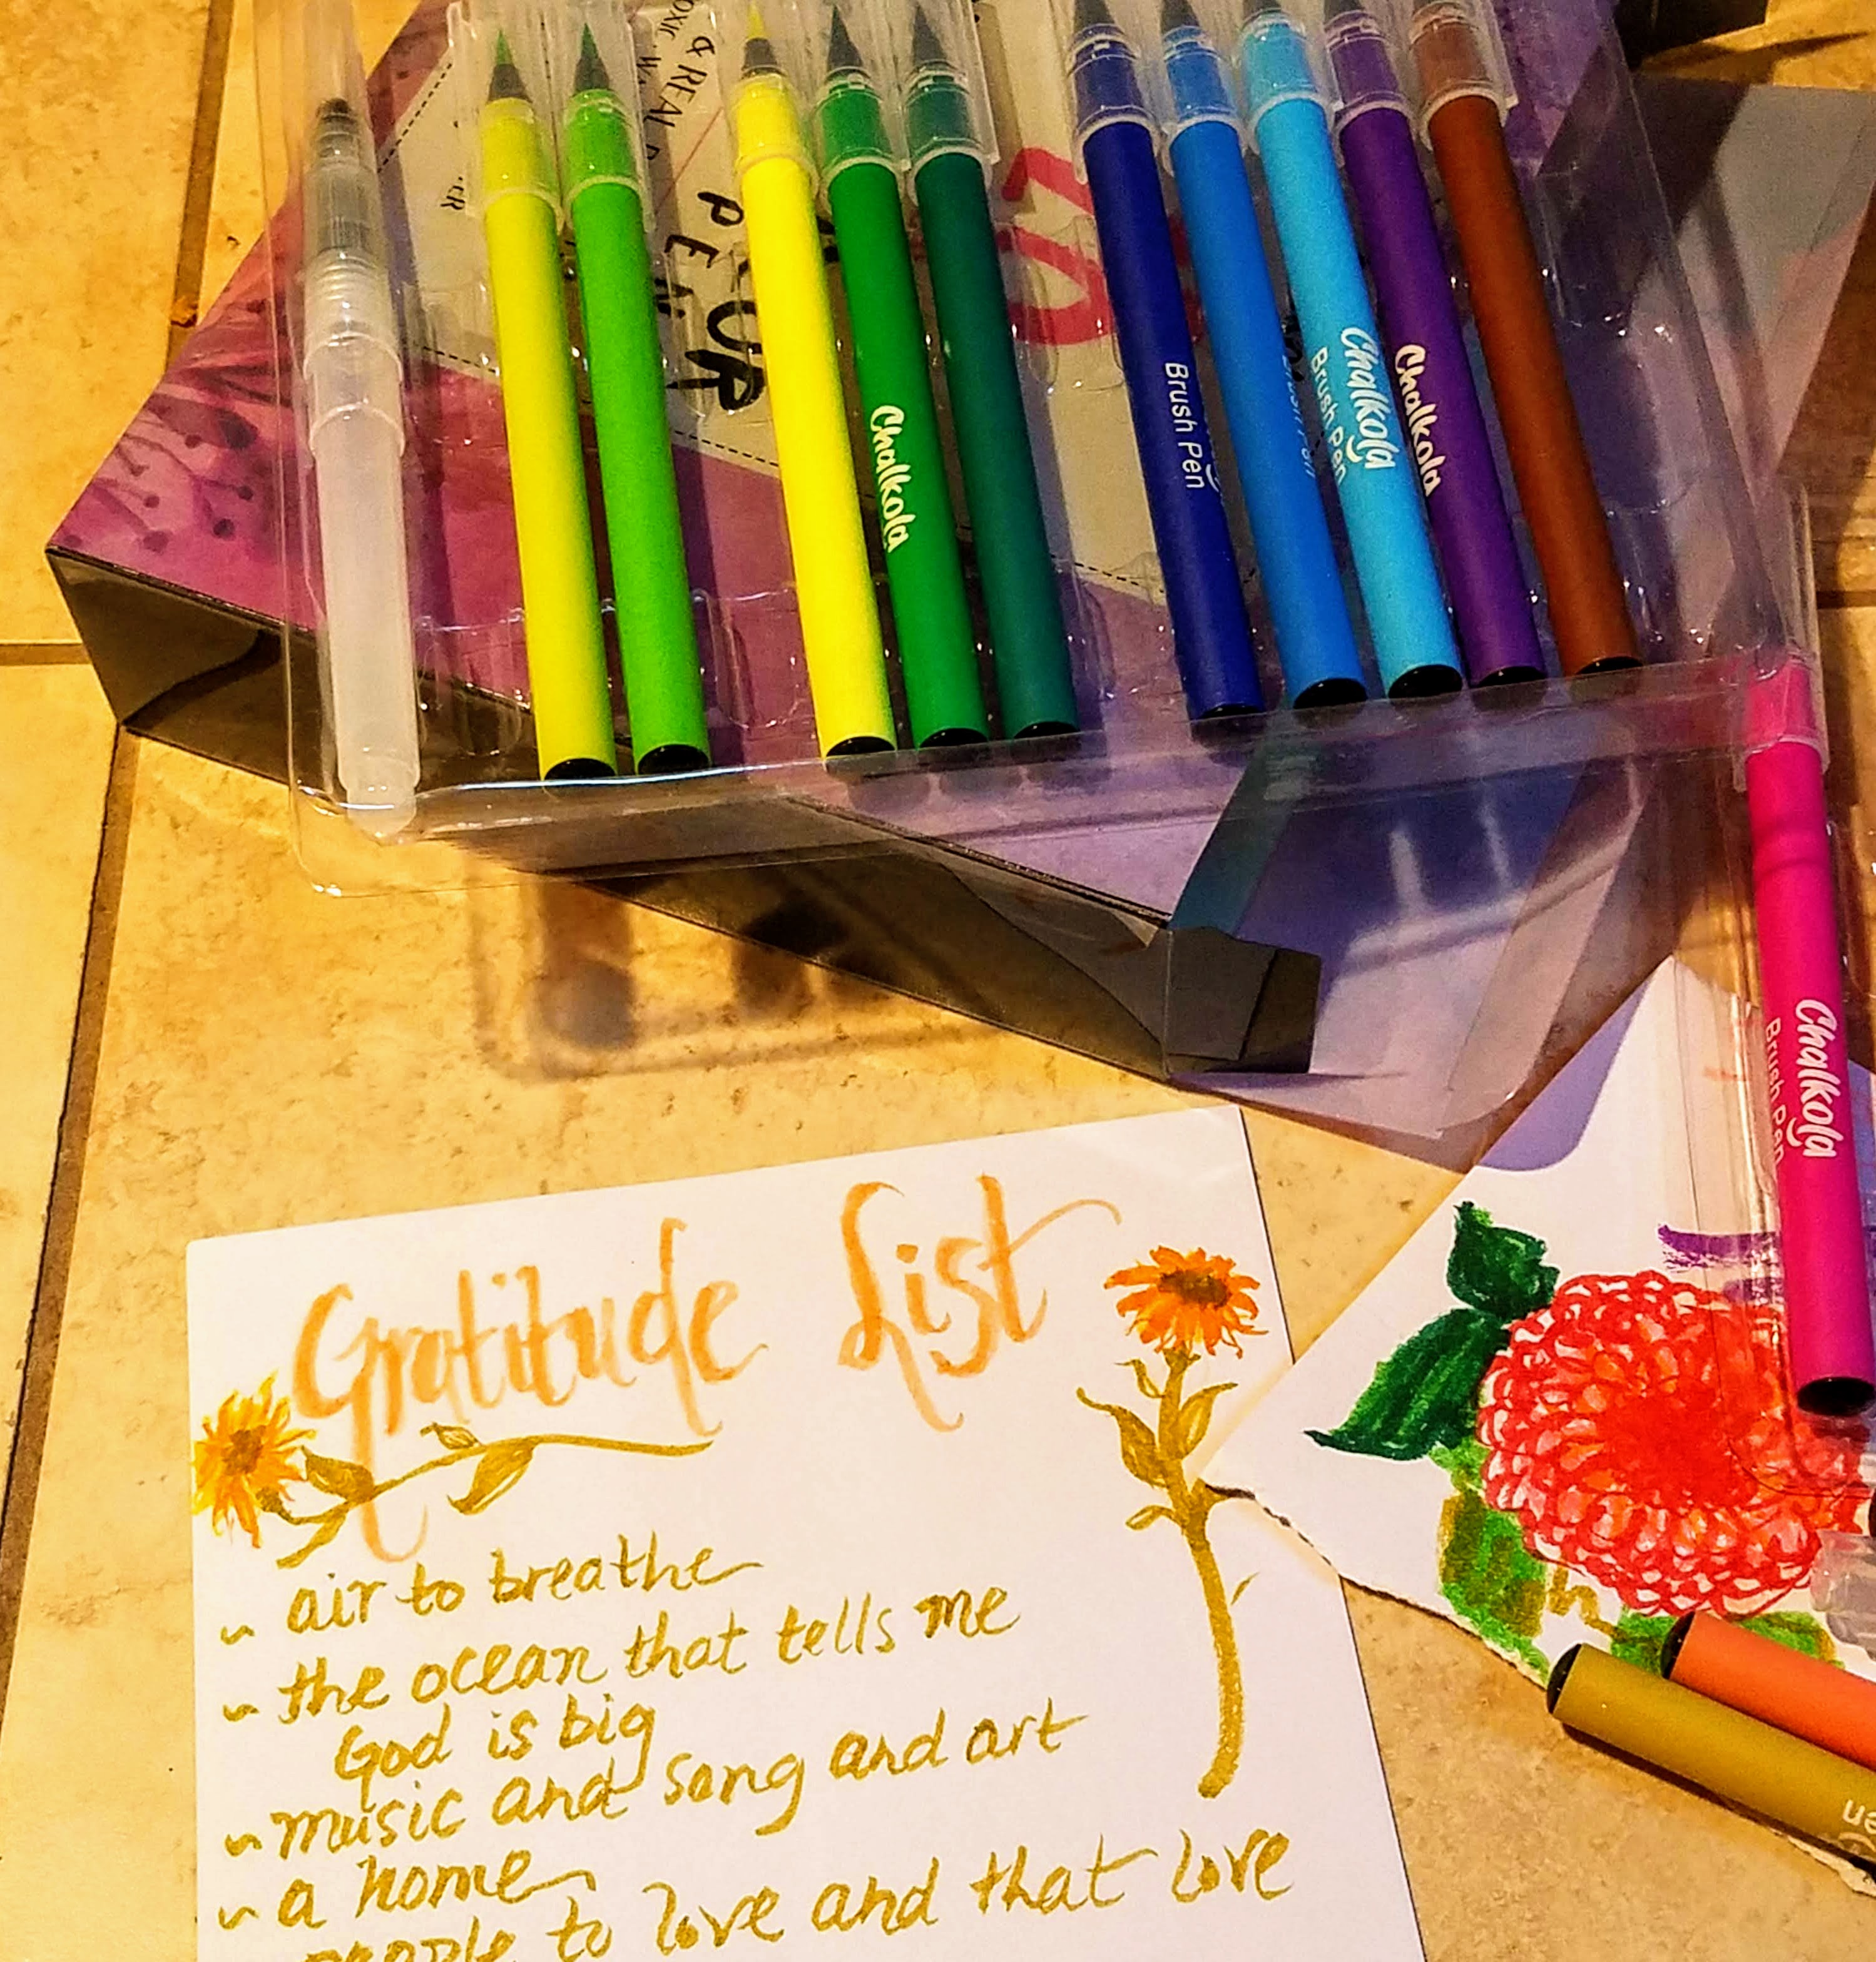 & REAL
PEN
UP
Chalkola
Brush Pen
Brush Pen
Chalkola
Brush Pen
Chalkola
Chalkola
Brush Pen
Gratitude List
~ air to breathe
~ the ocean that tells me
God is big
~ music and song and art
~ a home
people to love and that love
en